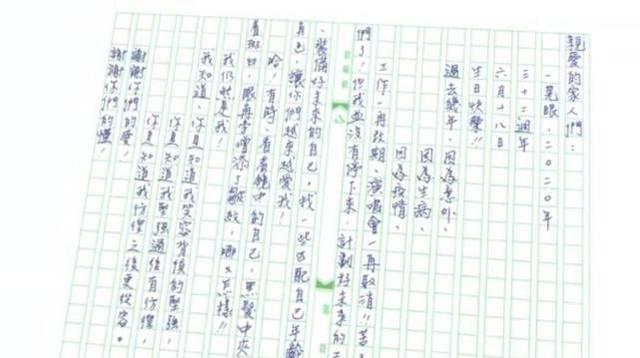 親愛的家人們：
一晃眼，二○二○年
三十二週年
六月十八日
生日快樂!!
過去幾年，因為意外、
因為生病、
因為疫情、
工作一再改期、演唱會一再取消!! 苦了
們了！但我並沒有停下來，計劃好未來的
、裝備好未來的自己，找一些匹配自己年齡
自己，讓你們越來越愛我！
哈！有時，看看鏡中的自己，黑髮中夾
著斑白，眼角亦增添了皺紋，哪又怎樣!!
我仍然是我！
我知道，你真知道我笑容背後的堅強，
你真知道我堅強過後有彷徨，
你真知道我彷徨之後更從容。
謝謝你們的愛！
謝謝你們的懂！